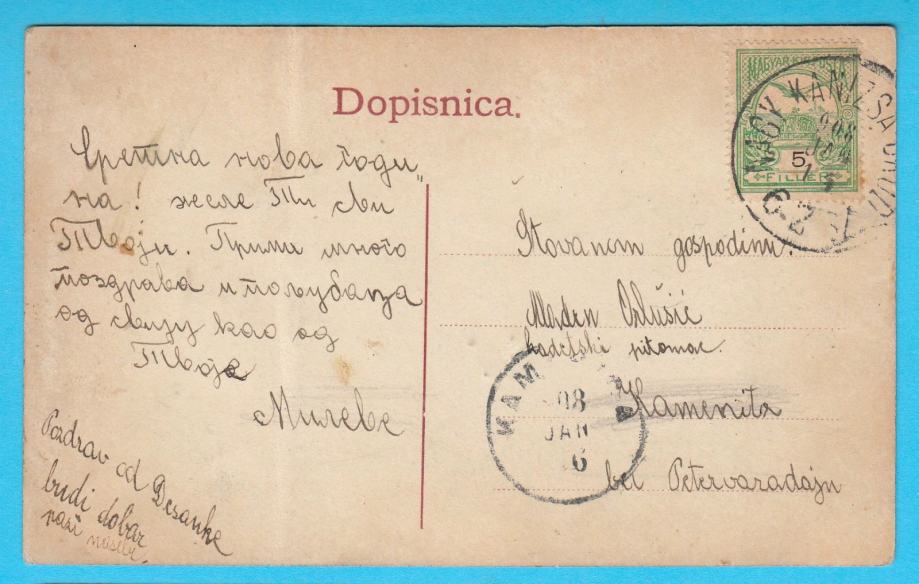 Dopisnica.
Сретна нова годи„
на! желе Ти сви
Твоји. Прими много
поздрава и пољубаца
од свију као од
Твоје
Милеве
Pozdrav od Desanke
budi dobar
pazi nasebe.
Štovanom gospodinu.
Mladen
kadetski pitomac.
Kamenita
bei Petervaradajn
MAGYAR KIR. POSTA
5
FILLÉR
NAGY KANIZSA
908
JAN
KAM
908
JAN
6